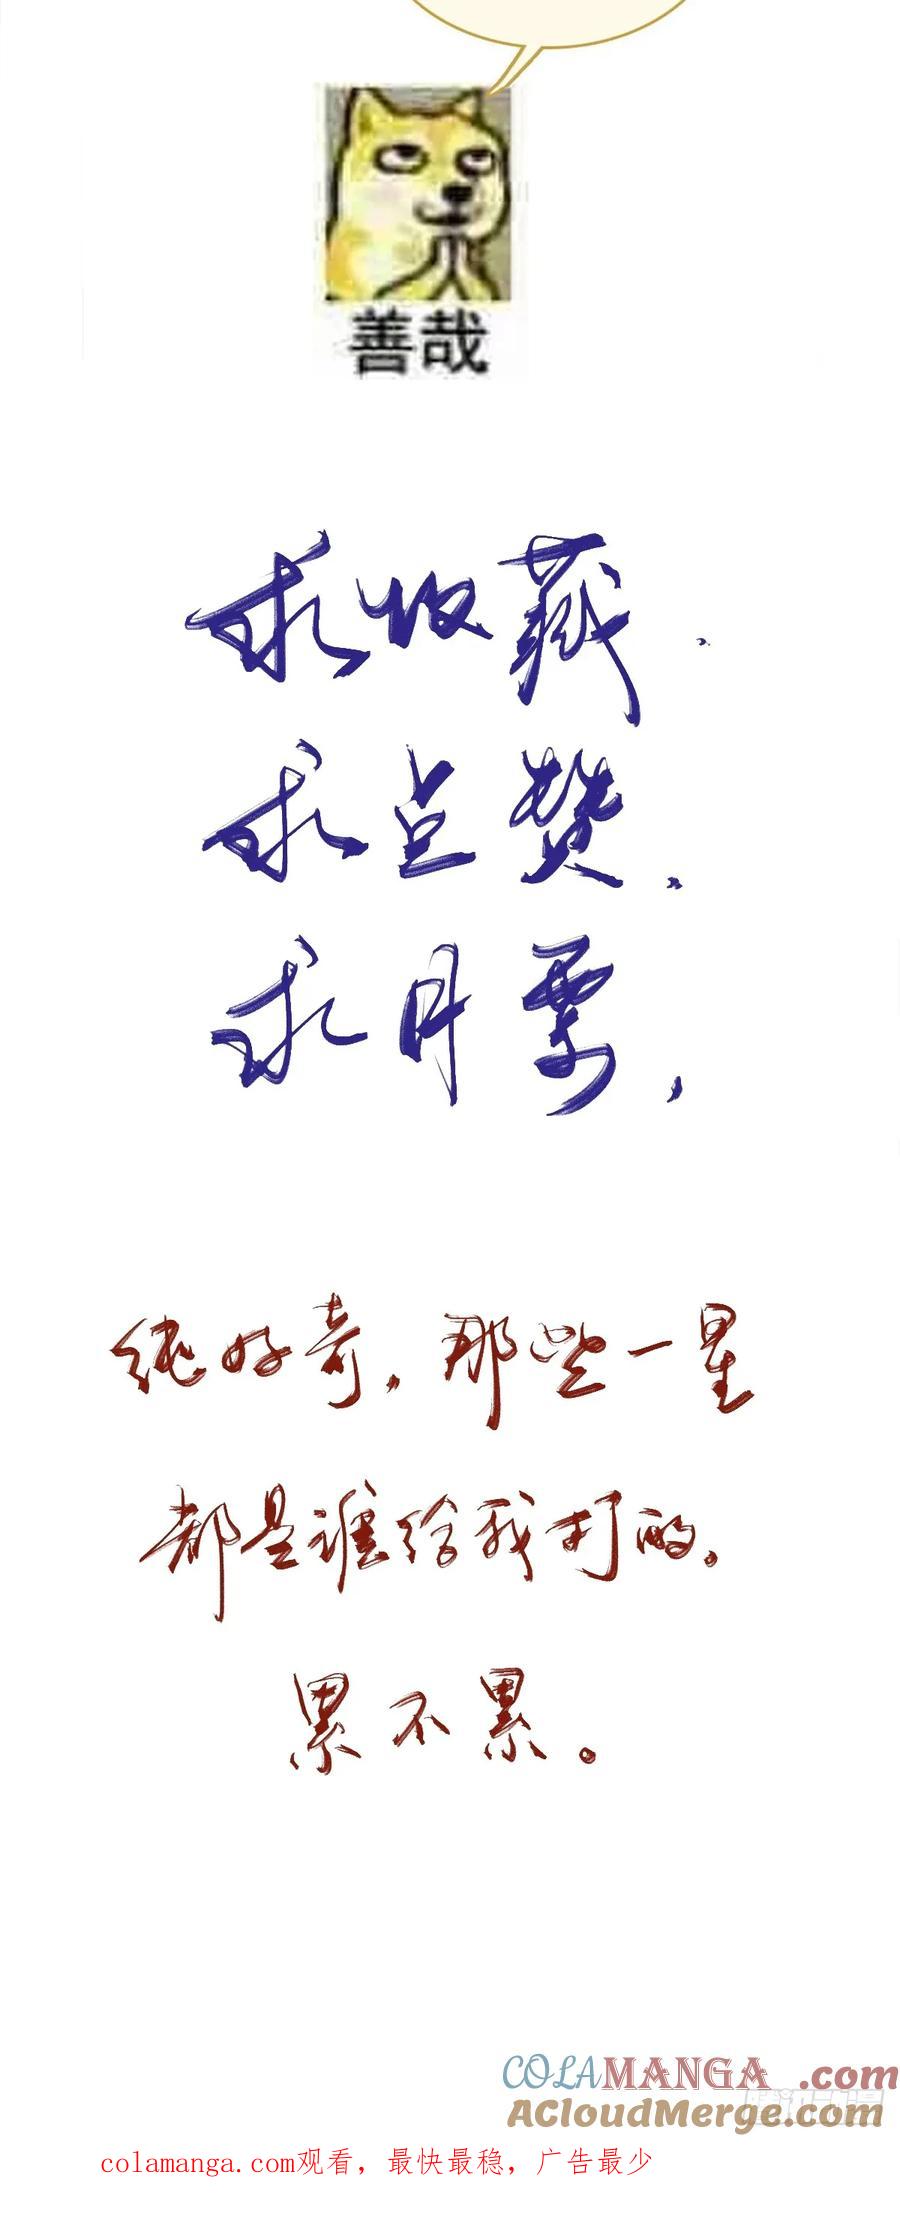 善哉
求收藏.
求点赞.
求月票,
纯好奇，那些一星
都是谁给我打的。
累不累。
COLAMANGA.com
ACloudMerge.com
colamanga.com观看，最快最稳，广告最少